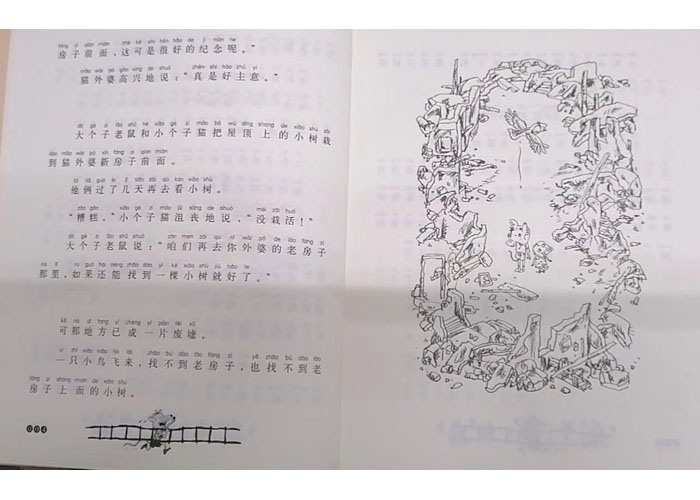 fáng zi qián miàn zhè kě shì hěn hǎo de jì niàn ne
房子前面、这可是很好的纪念呢。”
māo wài pó gāo xìng de shuō zhēn shì hǎo zhǔ yì
猫外婆高兴地说：“真是好主意。”
dà gè zi lǎo shǔ hé xiǎo gè zi māo bǎ wū dǐng shang de xiǎo shù zāi
大个子老鼠和小个子猫把屋顶上的小树栽
dào māo wài pó xīn fáng zi qián miàn
到猫外婆新房子前面。
tā liǎ guò le jǐ tiān zài qù kàn xiǎo shù
他俩过了几天再去看小树。
zāo gāo xiǎo gè zi māo jǔ sàng de shuō méi zāi huó
“糟糕。”小个子猫沮丧地说，“没栽活！”
dà gè zi lǎo shǔ shuō zán men zài qù nǐ wài pó de lǎo fáng zi
大个子老鼠说：“咱们再去你外婆的老房子
nà lǐ rú guǒ hái néng zhǎo dào yì kē xiǎo shù jiù hǎo le
那里，如果还能找到一棵小树就好了。”
kě nà dì fang yǐ chéng yí piàn fèi xū
可那地方已成一片废墟。
yì zhī xiǎo niǎo fēi lái zhǎo bú dào lǎo fáng zi yě zhǎo bú dào lǎo
一只小鸟飞来，找不到老房子，也找不到老
fáng zi shàng miàn de xiǎo shù
房子上面的小树。